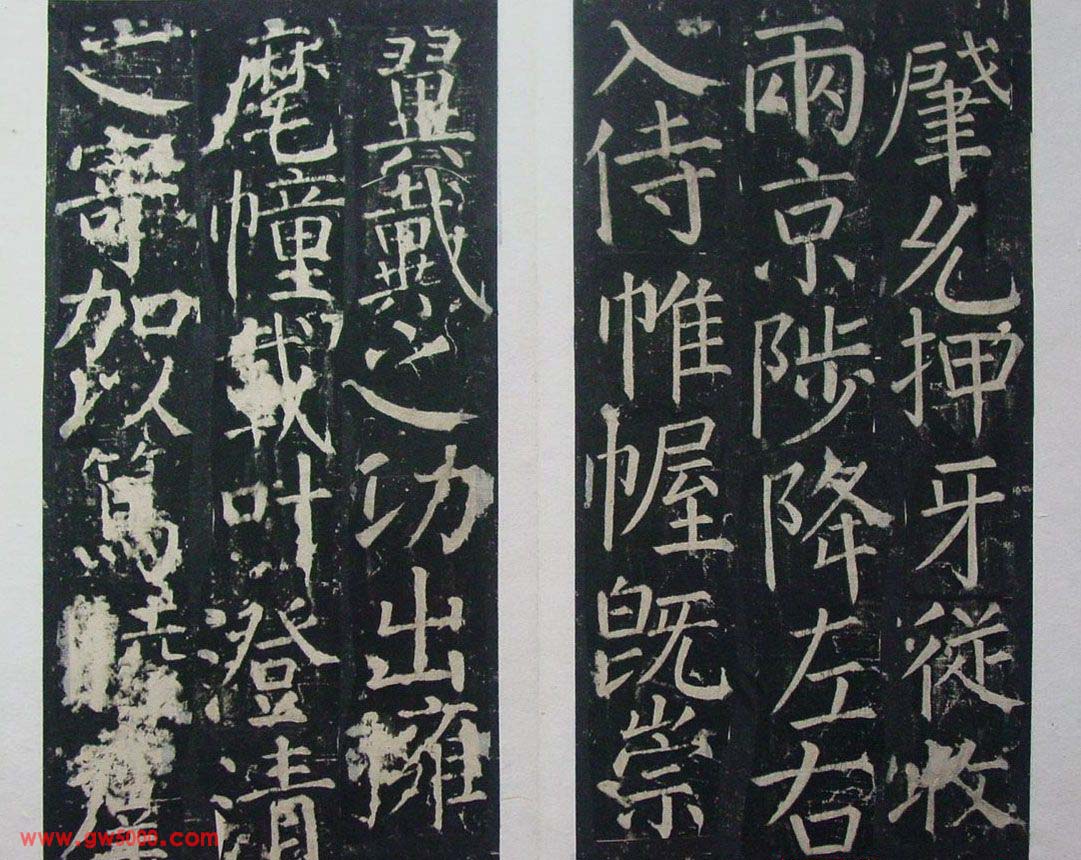 肇允押牙從收
兩京陟降左右
入侍帷幄既崇
翼戴之功出擁
麾幢載叶澄清
之寄加以篤
www.gw5000.com